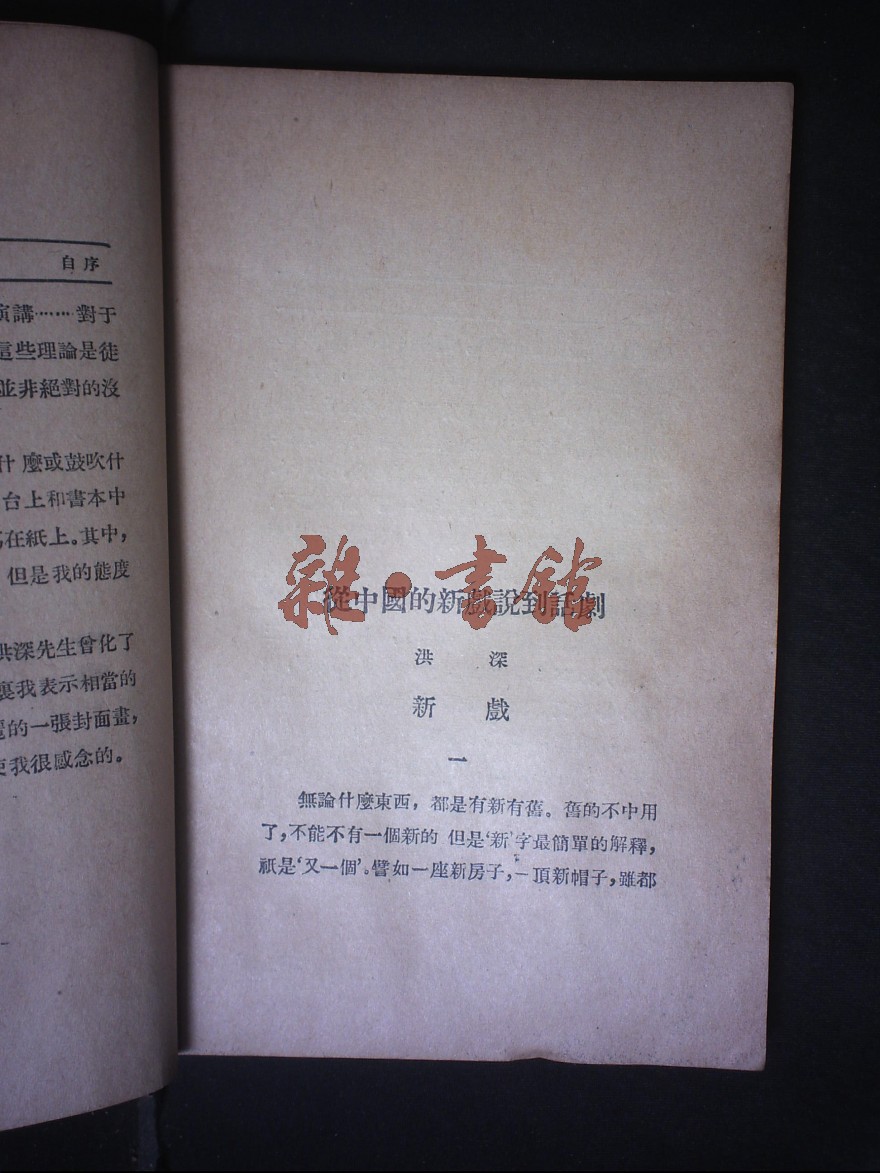 自序
演講……對于
這些理論是徒
並非絕對的沒
什麼或鼓吹什
台上和書本中
在紙上。其中，
但是我的態度
洪深先生曾化了
裏我表示相當的
的一張封面畫，
使我很感念的。
從中國的新戲說到話劇
雜·書館
洪 深
新 戲
一
無論什麼東西，都是有新有舊。舊的不中用
了，不能不有一個新的 但是‘新’字最簡單的解釋，
祇是‘又一個’。譬如一座新房子，一頂新帽子，雖都